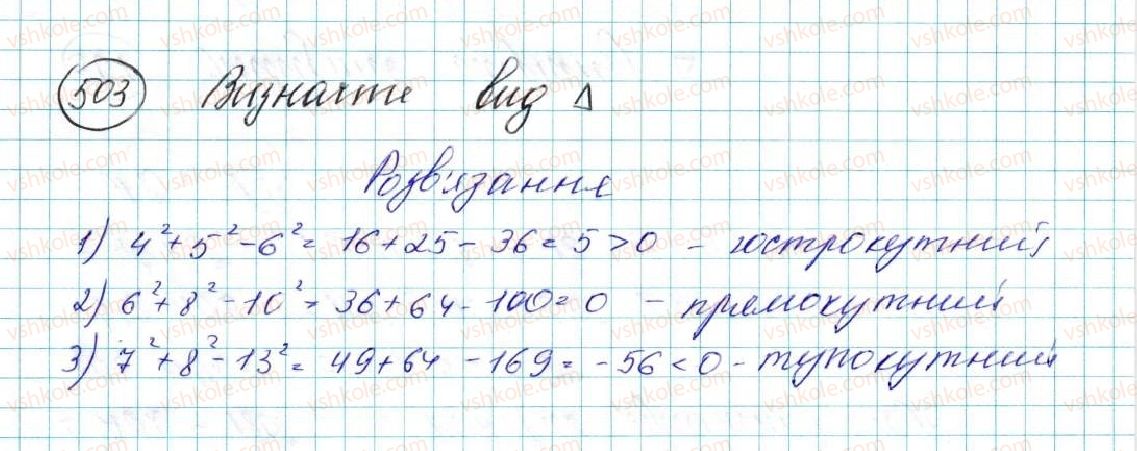 503 Визначте вид Δ
Розв'язання
1) 4² + 5² - 6² = 16 + 25 - 36 = 5 > 0 - гострокутний
2) 6² + 8² - 10² = 36 + 64 - 100 = 0 - прямокутний
3) 7² + 8² - 13² = 49 + 64 - 169 = -56 < 0 - тупокутний